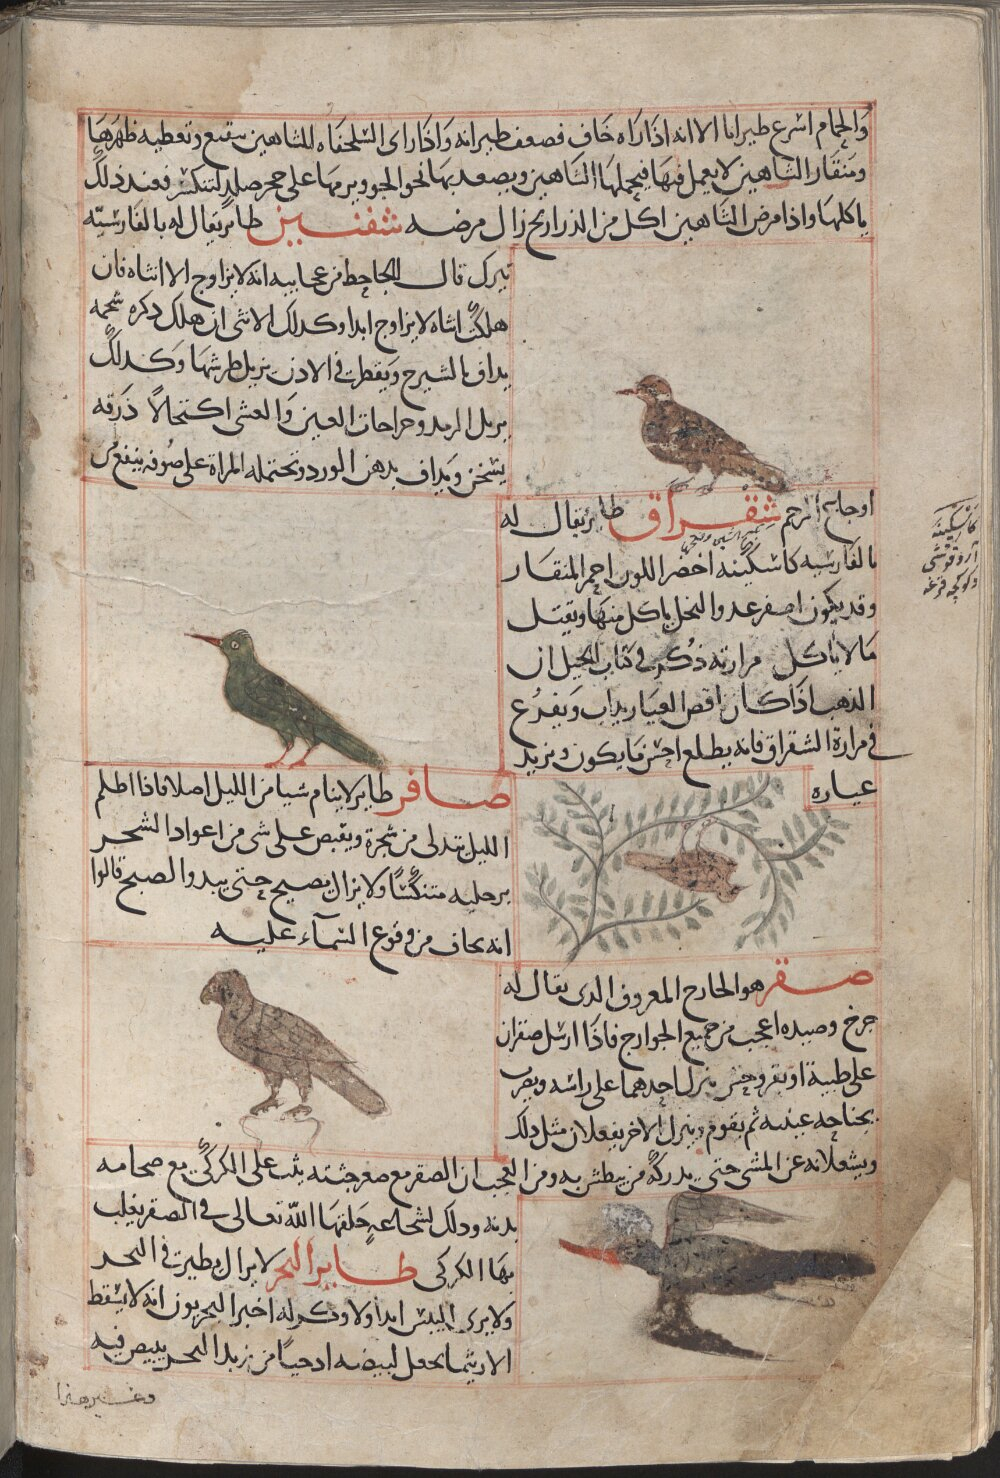 والحمام اسرع طيرانا الا انه اذا راه خاف فضعف طيرانه واذا راى السلحفاه للشاهين سقنع وتعطيه ظهرها
ومنقار الشاهين لا يعمل فيها فيحملها الشاهين ويصعد بها نحو الجو ويرميها على حجر صلد لتنكسر فعند ذلك
ياكلها واذا مرض الشاهين اكل من الذراريح زال مرضه شفنين طاير يقال له بالفارسيه
تيرك قال الجاحظ من عجايبه انه لا يزاوج الا انثاه فان
هلكت انثاه لا يزاوج ابدا وكذلك الانثى ان هلك ذكره شحمه
يداف بالشيرج ويقطر في الاذن يزيل طرشها وكذلك
يزيل الرمد وجراحات العين والعشى اكتحالا ذرقه
يسخن ويداف بدهن الورد وتحتمله المراة على صوفه ينفع من
اوجاع الرحم شقراق طاير يقال له
بالفارسيه كاسكينه اخضر اللون احمر المنقار
وقد يكون اصفر عدو النحل ياكل منها ويقتل
ما لا ياكل مرارته ذكر في كتاب الحيل ان
الذهب اذا كان ناقص العيار يذاب ويفرغ
في مرارة الشقراق فانه يطلع احسن ما يكون ويزيد
عياره
كاسكينه
صافر طاير لا ينام شيا من الليل اصلا فاذا اظلم
الليل يتدلى من شجرة ويقبض على شي من اعواد الشجر
برجليه متنكسا ولا يزال يصيح حتى يبدو الصبح قالوا
انه يخاف من وقوع السماء عليه
صقر هو الجارح المعروف الذى يقال له
جرخ وصيده اعجب من جميع الجوارح فاذا ارسل صقران
على ظبية او بقر وحش ينزل احدهما على راسه ويضرب
بجناحه عينيه ثم يقوم وينزل الاخر يفعلان مثل ذلك
ويشغلانه عن المشى حتى يدركه من يبطش به ومن العجب ان الصقر مع صغر جثته يثب على الكركي مع ضخامه
بدنه وذلك لشجاعه خلقها الله تعالى في الصقر يغلب
بها الكركى طاير البحر لا يزال يطير في البحر
ولا يرى اليبس ابدا ولا وكر له اخبر البحريون انه لا يسقط
الا ريثما يجعل لبيضه ادحيا من زبد البحر يبيض فيه
وغير هذا